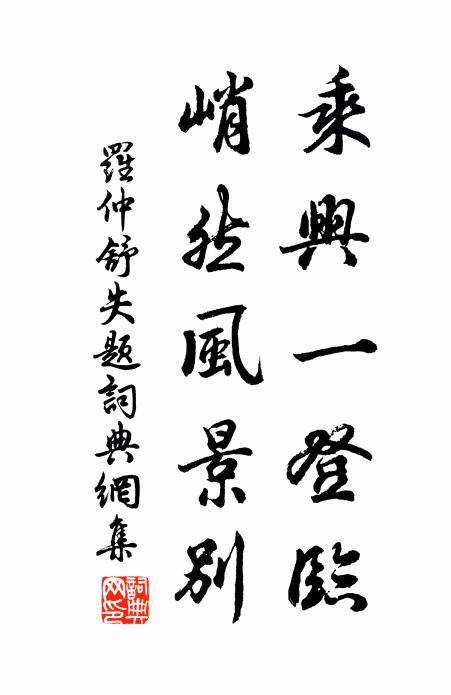 乘興一登臨
峭然風景別
羅仲舒失題詞典網集
詞典網印